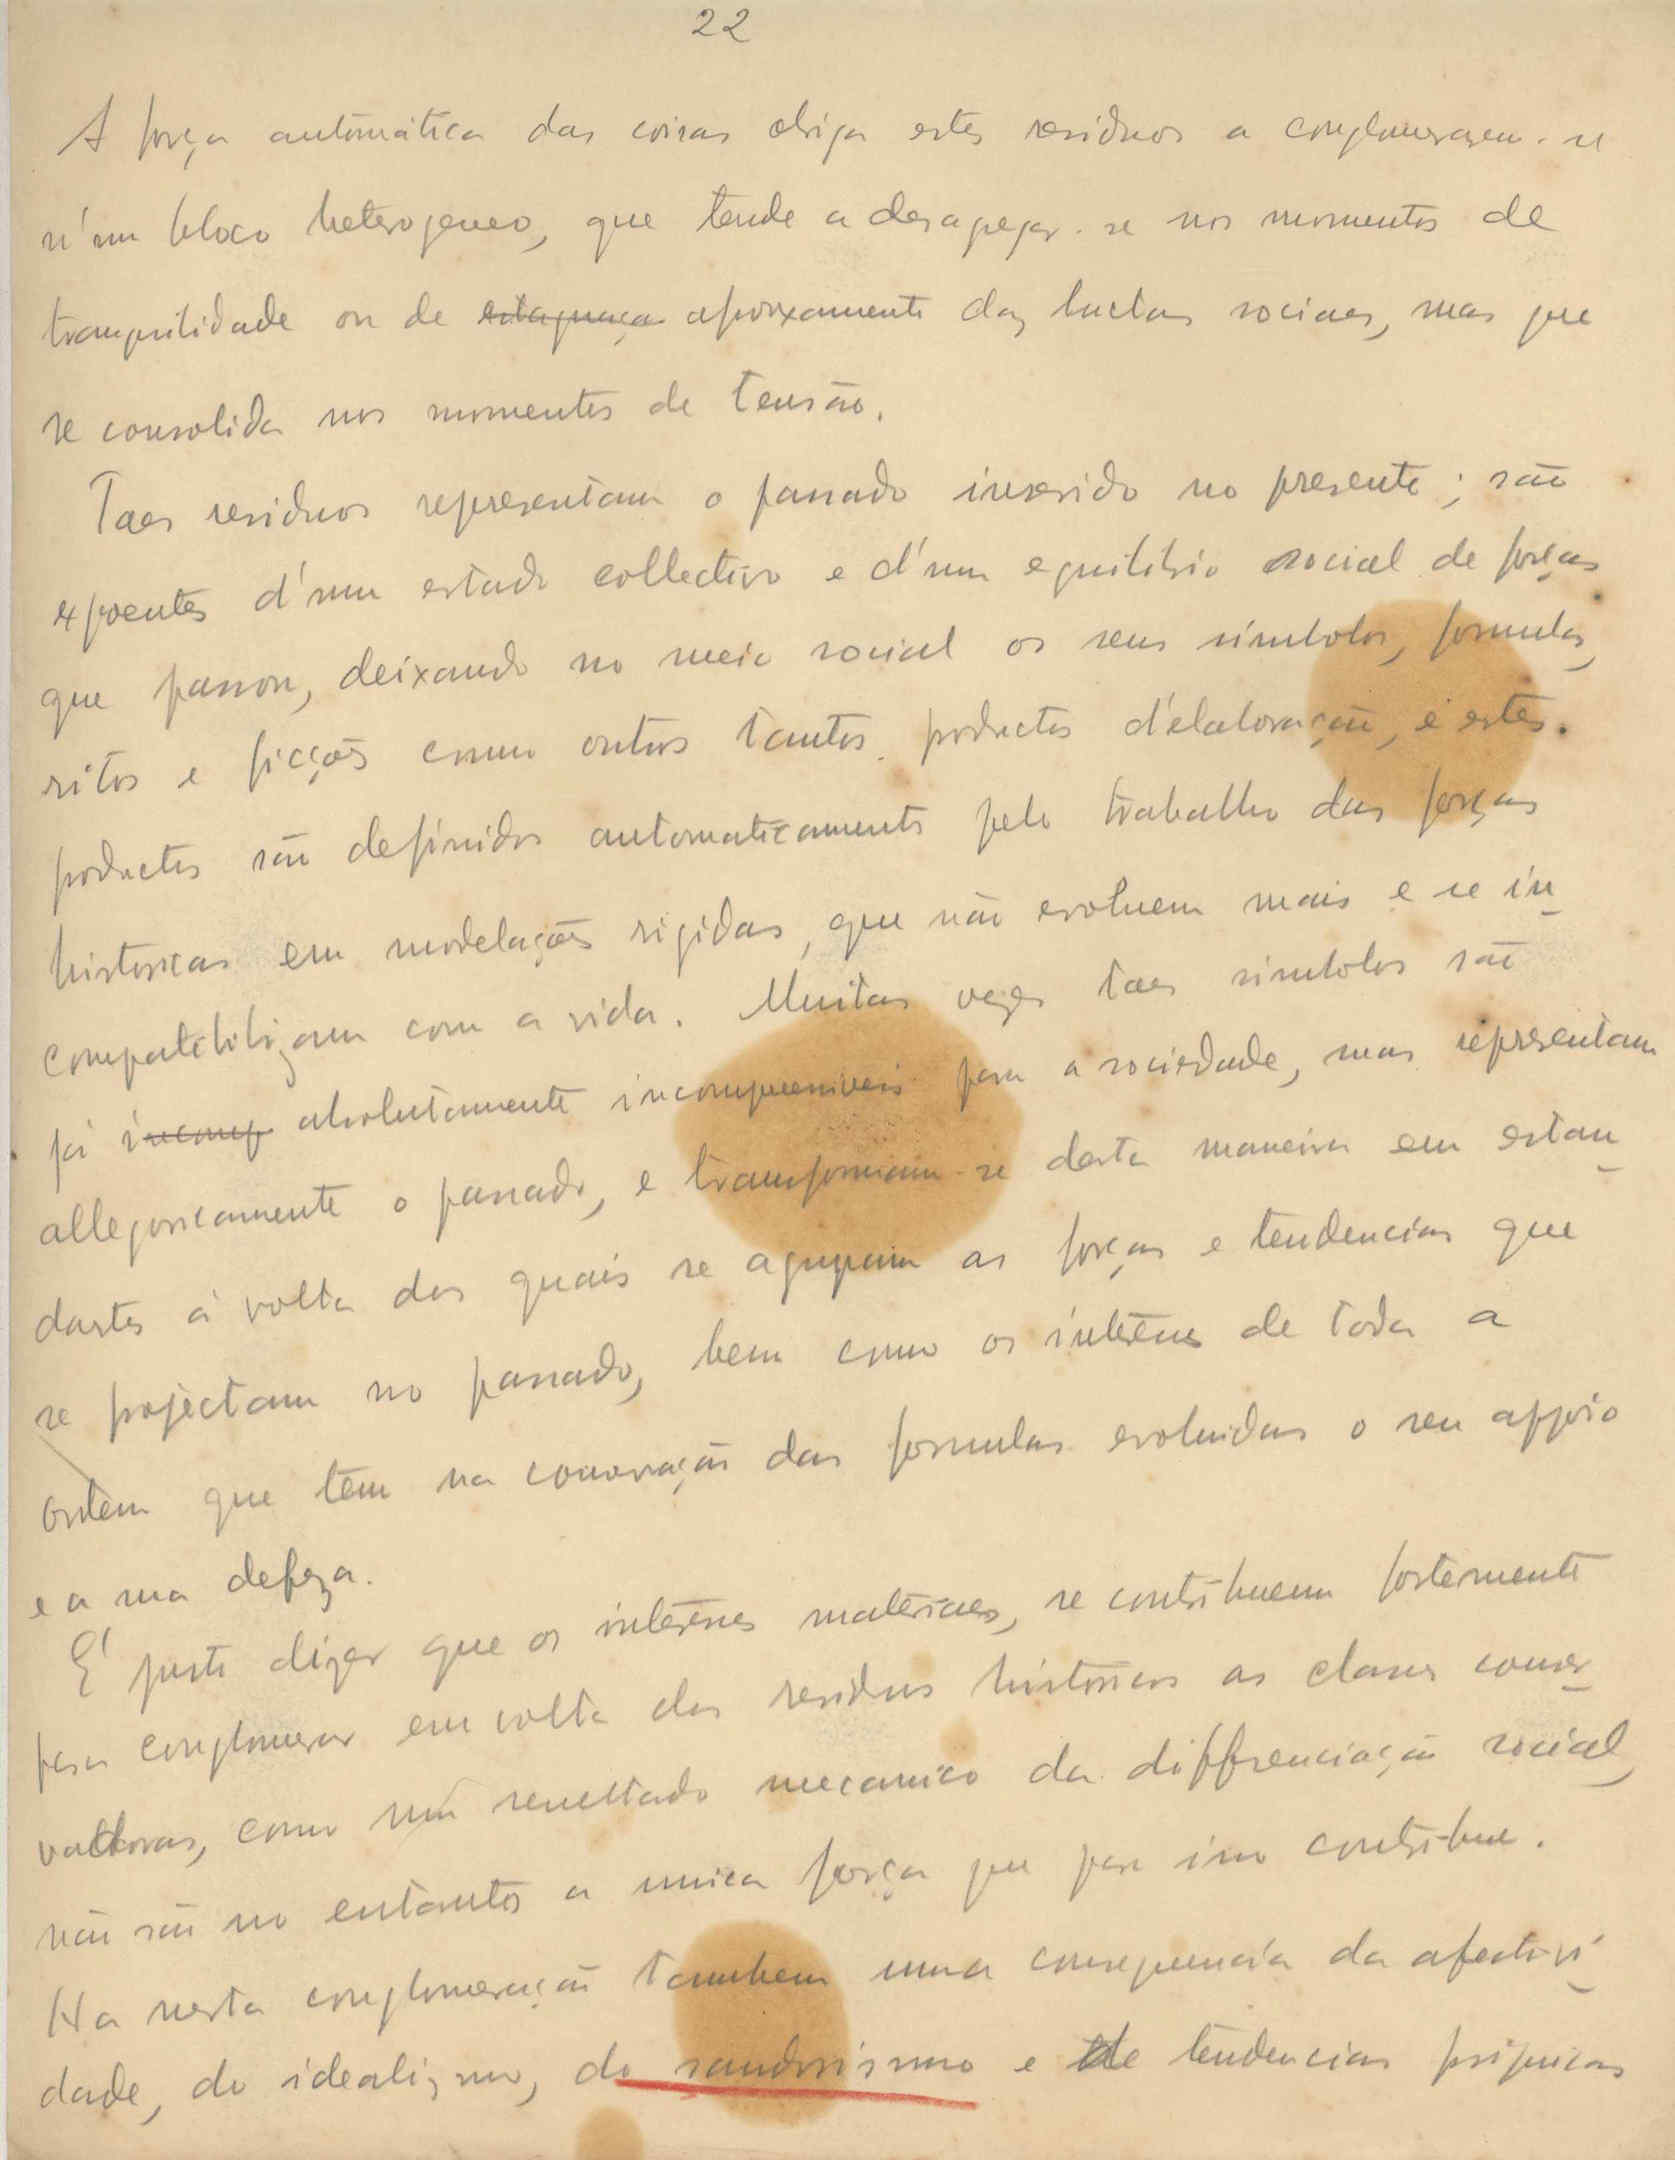 22
A força automática das coisas obriga estes residuos a conglomerarem-se
n'um bloco heterogeneo, que tende a desapegar-se nos momentos de
tranquilidade ou de estagnaça afrouxamento das luctas sociaes, mas que
se consolida nos momentos de tensão.
Taes residuos representam o passado inserido no presente; são
expoentes d'um estado collectivo e d'um equilibrio social de forças
que passou, deixando no meio social os seus simbolos, formulas,
ritos e ficções como outros tantos productos d'elaboração, e estes
productos são definidos automaticamente pelo trabalho das forças
historicas em modelações rigidas, que não evoluem mais e se in-
compatibilizam com a vida. Muitas vezes taes simbolos são
já incomp absolutamente incompreensiveis para a sociedade, mas representam
allegoricamente o passado, e transformam-se desta maneira em estan-
dartes á volta dos quais se agrupam as forças e tendencias que
se projectam no passado, bem como os interesses de toda a
ordem que têm na conservação das formulas evoluidas o seu appoio
e a sua defeza.
É justo dizer que os interesses materiaes, se contribuem fortemente
para conglomerar em volta dos residuos historicos as classes conser-
vadoras, como um resultado mecanico da differenciação social,
não são no entanto a unica força que para isso contribue.
Ha nesta conglomeração tambem uma consequencia da afectivi-
dade, do idealismo, do saudosismo e de tendencias psiquicas